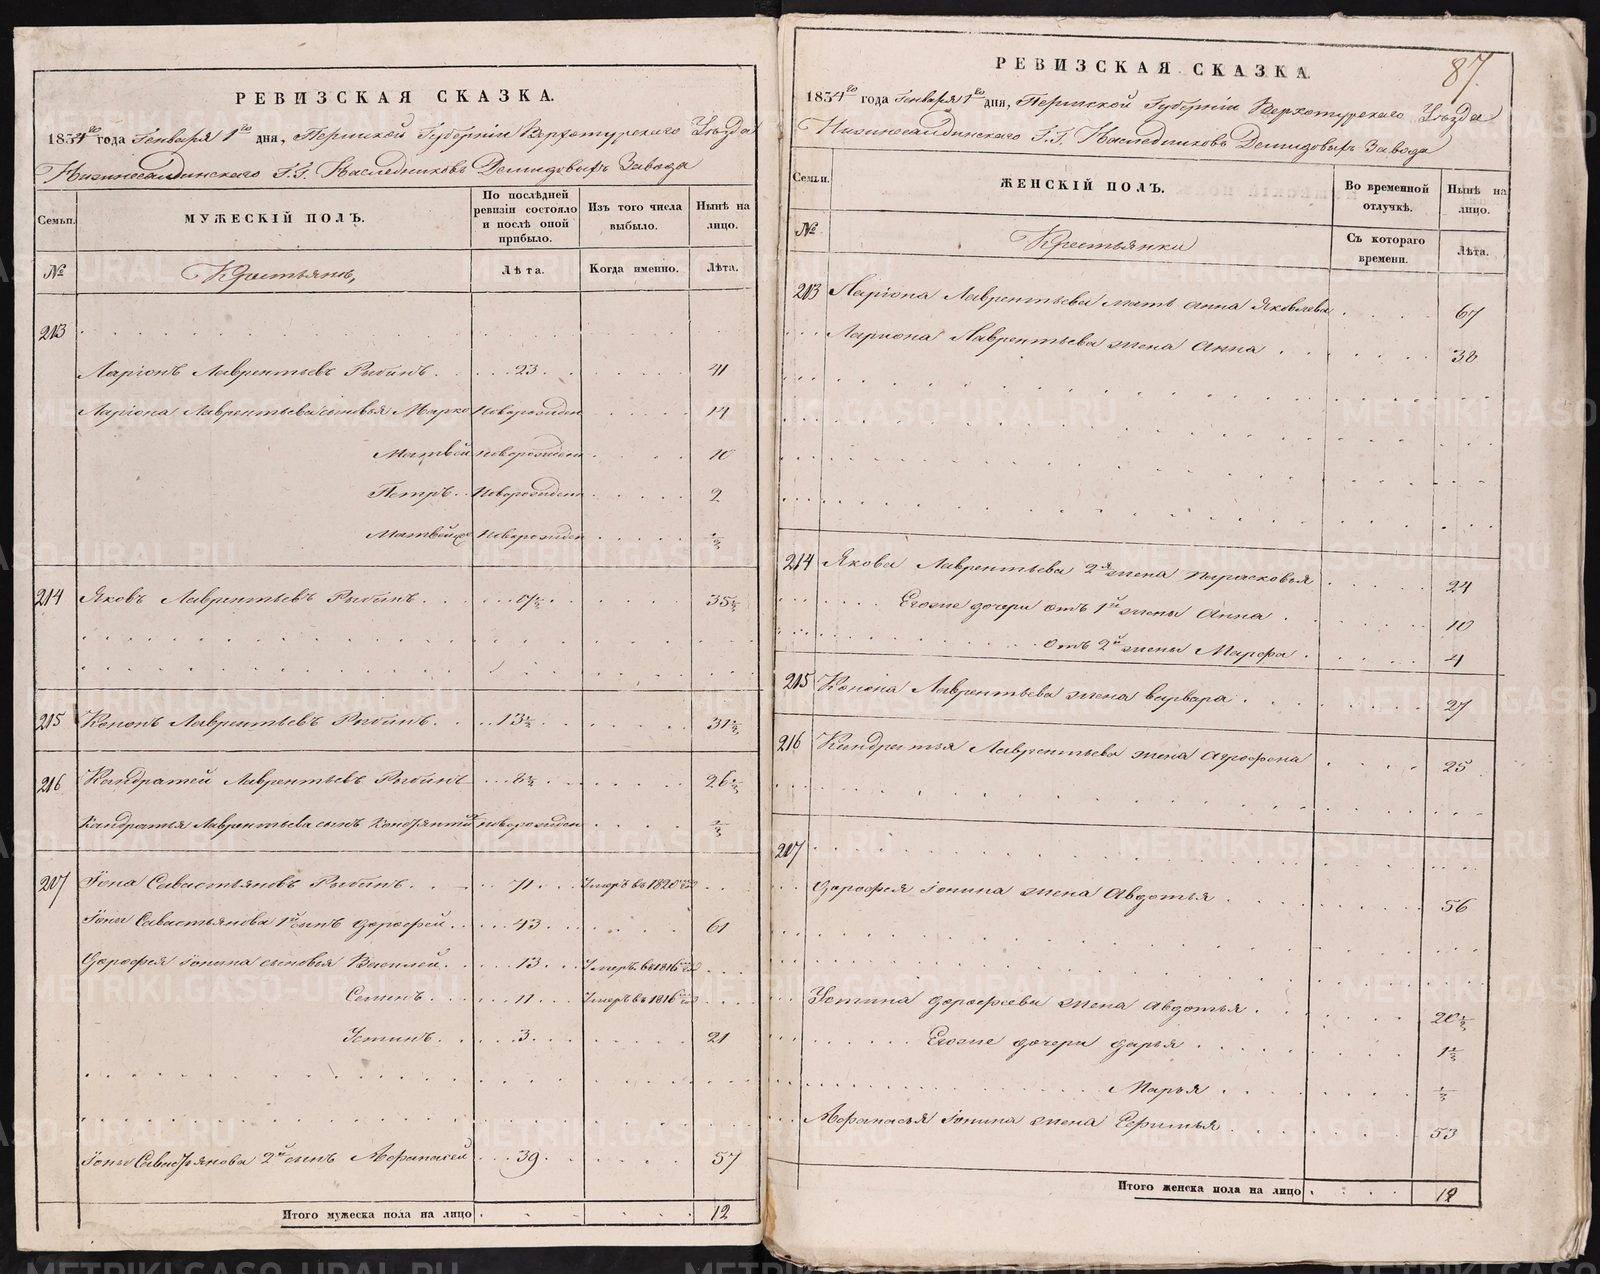 РЕВИЗСКАЯ СКАЗКА.
1834го года Генваря 1го дня, Пермской Губерніи Верхотурскаго Уѣзда
Нижнесалдинскаго Г.Г. Наследниковъ Демидовыхъ Завода
Семьи. МУЖЕСКІЙ ПОЛЪ. По послѣдней ревизіи состояло и послѣ оной прибыло. Изъ того числа выбыло. Нынѣ на лицо.
№ Крестьянъ, Лѣта. Когда именно. Лѣта.
213
Ларіонъ Лаврентьевъ Рыбинъ 23 41
Ларіона Лаврентьева сыновья Марко новорожден 14
Матвей новорожден 10
Петръ новорожден 2
Матвей новорожден
214 Яковъ Лаврентьевъ Рыбинъ 17½ 35½
215 Кононъ Лаврентьевъ Рыбинъ 13½ 31½
216 Кандратей Лаврентьевъ Рыбинъ 8½ 26½
Кандратья Лаврентьева сынъ новорожден ½
217 Іона Савастьяновъ Рыбинъ 71 Умеръ въ 1820
Іоны Савастьянова 1й сынъ Дорофей 43 61
Дорофея Іонина сыновья Василей 13 Умеръ въ 1816
Семенъ 11 Умеръ въ 1816
Устинъ 3 21
Іоны Савастьянова 2й сынъ Афанасей 39 57
Итого мужеска пола на лицо 12
87
РЕВИЗСКАЯ СКАЗКА.
1834го года Генваря 1го дня, Пермской Губерніи Верхотурскаго Уѣзда
Нижнесалдинскаго Г.Г. Наследниковъ Демидовыхъ Завода
Семьи. ЖЕНСКІЙ ПОЛЪ. Во временной отлучкѣ. Нынѣ на лицо.
№ Крестьянки Съ котораго времени. Лѣта.
213 Ларіона Лаврентьева мать Анна Яковлева 67
Ларіона Лаврентьева жена Анна 38
214 Якова Лаврентьева 2я жена Парасковья 24
Егоже дочери отъ 1й жены Анна 10
отъ 2й жены Марфа 4
215 Конона Лаврентьева жена Варвара 27
216 Кандратья Лаврентьева жена Агрофена 25
217
Дорофея Іонина жена Авдотья 56
Устина Дорофеева жена Авдотья 20½
Егоже дочери Дарья 1½
Марья
Афанасья Іонина жена Ефимья 53
Итого женска пола на лицо 12
METRIKI.GASO-URAL.RU